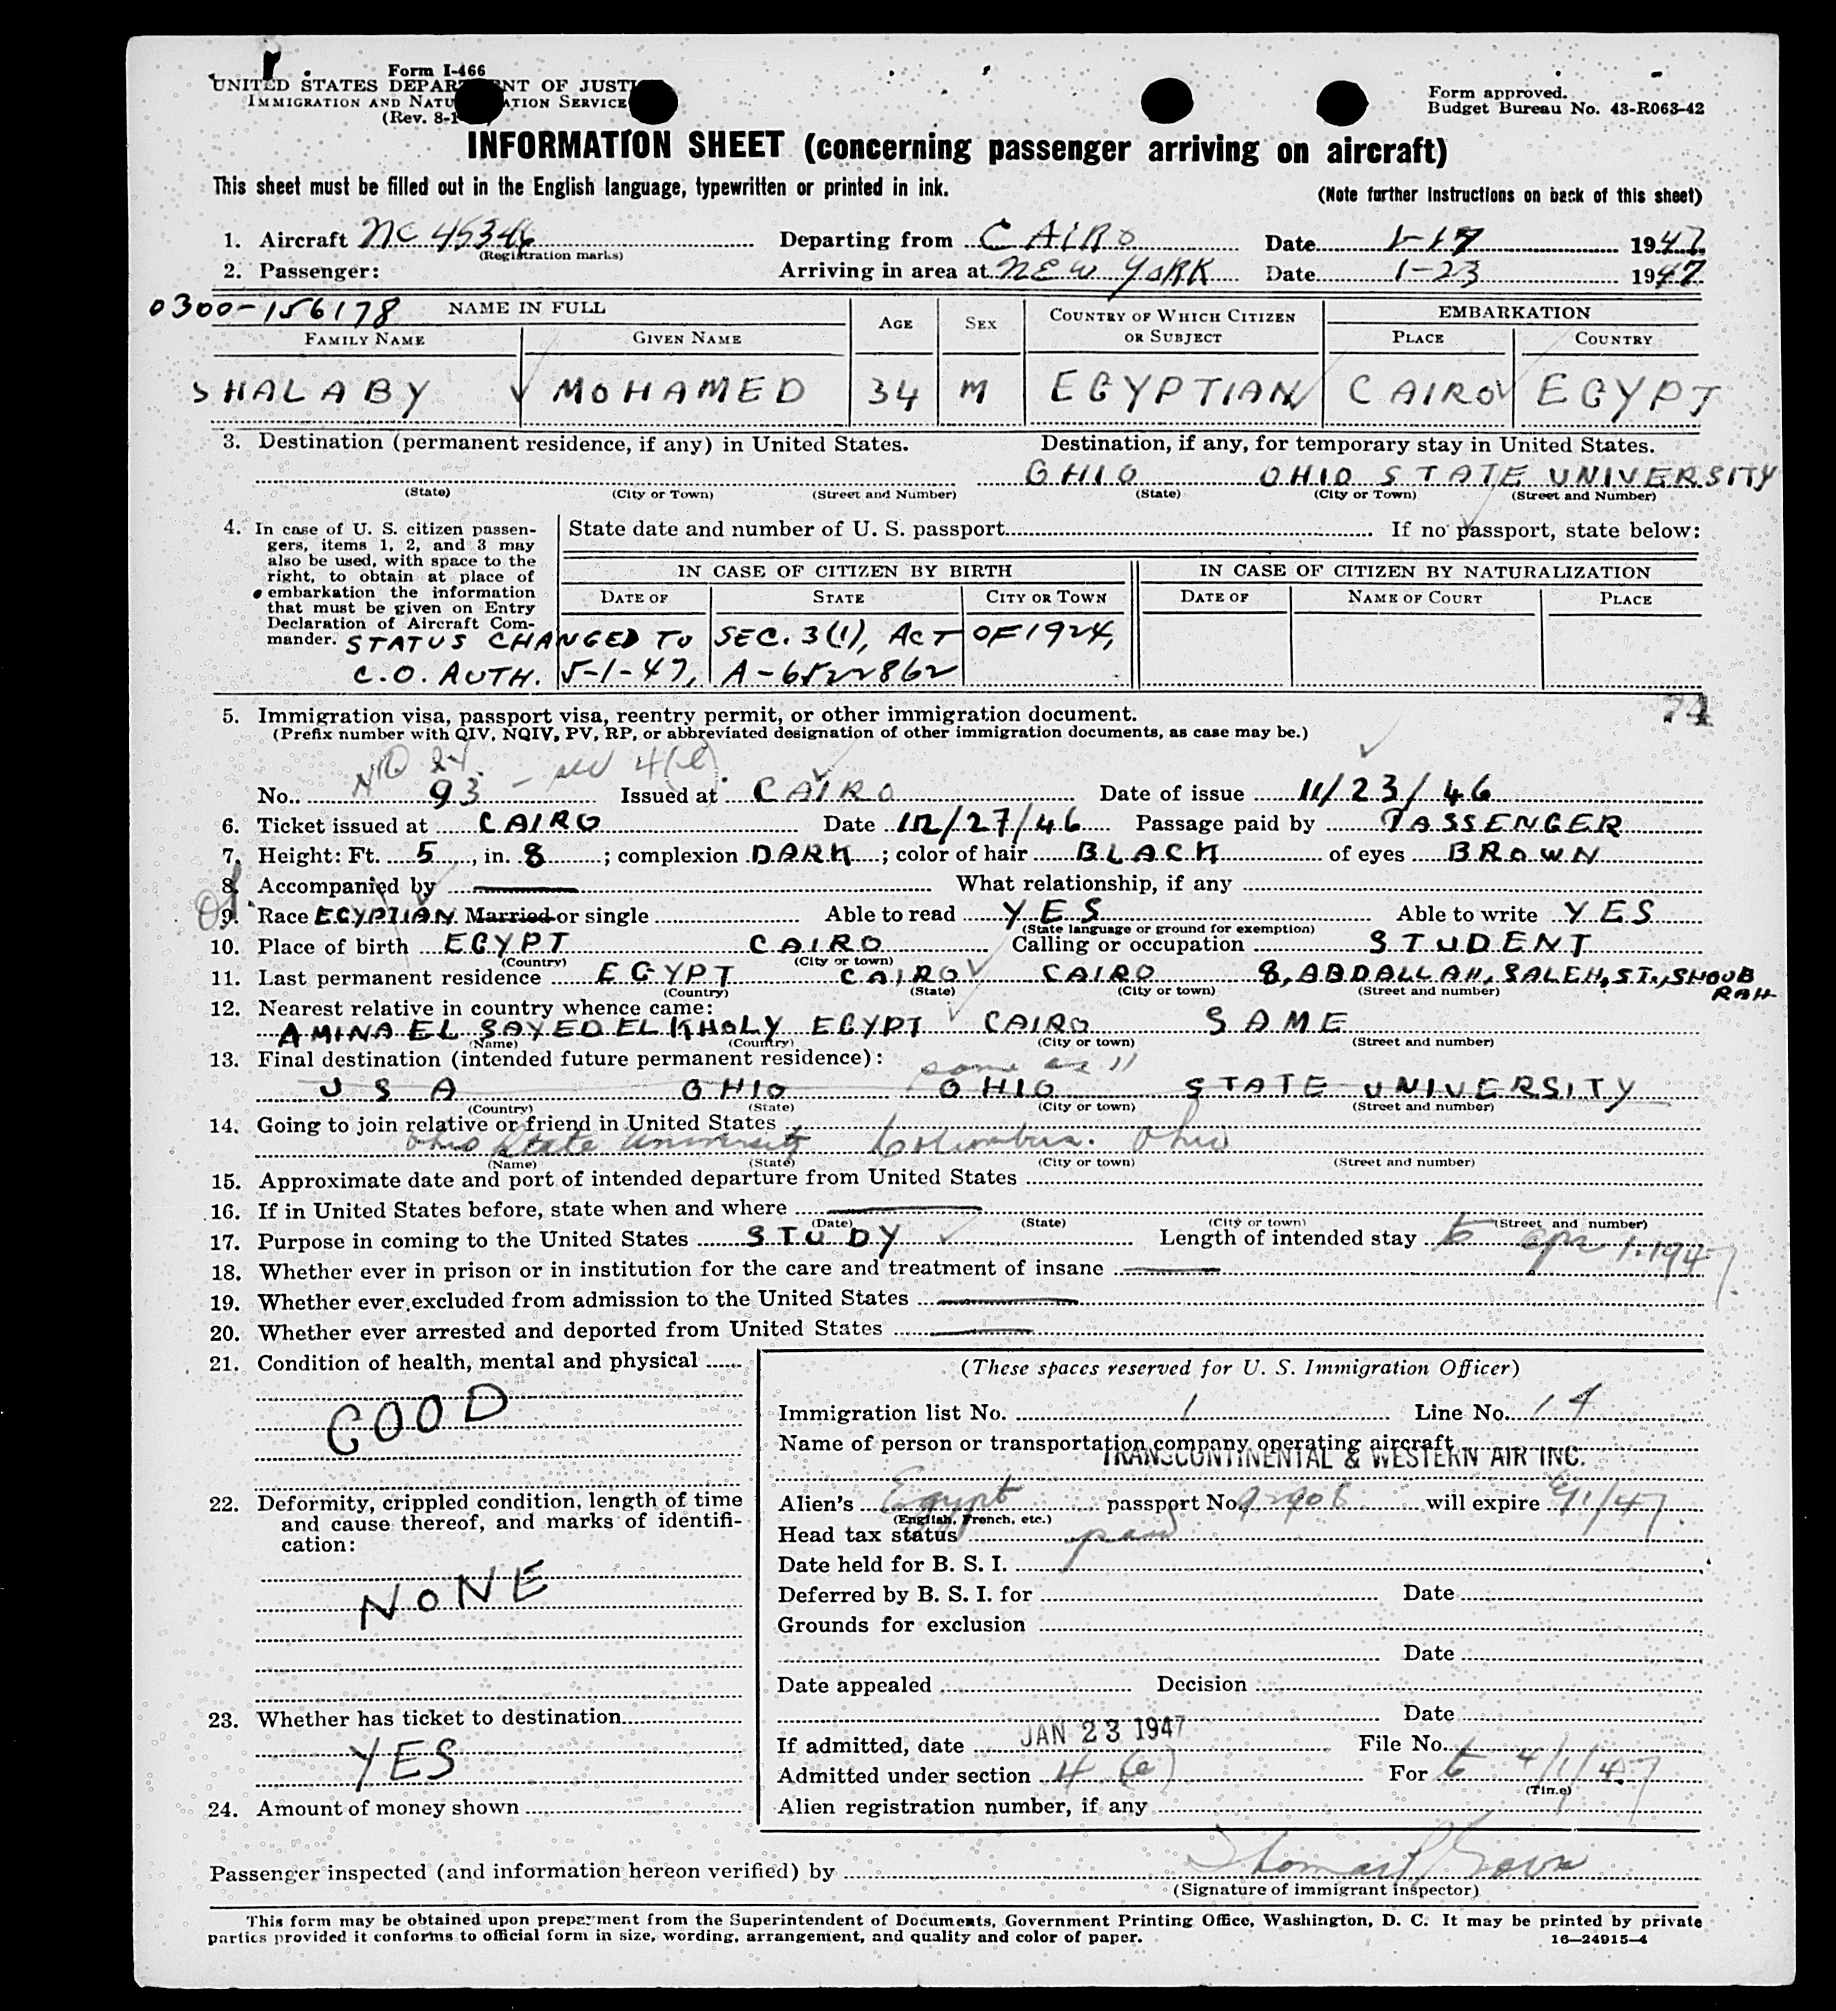 Form I-466
UNITED STATES DEPARTMENT OF JUSTICE
IMMIGRATION AND NATURALIZATION SERVICE
(Rev. 8-1
Form approved.
Budget Bureau No. 43-R063-42
INFORMATION SHEET (concerning passenger arriving on aircraft)
This sheet must be filled out in the English language, typewritten or printed in ink.
(Note further instructions on back of this sheet)
1. Aircraft NC 45346 Departing from CAIRO Date 1-17 1947
(Registration marks)
2. Passenger: Arriving in area at NEW YORK Date 1-23 1947
0300-156178 NAME IN FULL AGE SEX COUNTRY OF WHICH CITIZEN OR SUBJECT EMBARKATION
FAMILY NAME GIVEN NAME PLACE COUNTRY
SHALABY MOHAMED 34 M EGYPTIAN CAIRO EGYPT
3. Destination (permanent residence, if any) in United States. Destination, if any, for temporary stay in United States.
OHIO OHIO STATE UNIVERSITY
(State) (City or Town) (Street and Number) (State) (City or Town) (Street and Number)
4. In case of U. S. citizen passengers, items 1, 2, and 3 may also be used, with space to the right, to obtain at place of embarkation the information that must be given on Entry Declaration of Aircraft Commander.
State date and number of U. S. passport If no passport, state below:
IN CASE OF CITIZEN BY BIRTH IN CASE OF CITIZEN BY NATURALIZATION
DATE OF STATE CITY OR TOWN DATE OF NAME OF COURT PLACE
STATUS CHANGED TO SEC. 3(1), ACT OF 1924,
C.O. AUTH. 5-1-47, A-6522862
5. Immigration visa, passport visa, reentry permit, or other immigration document.
74
(Prefix number with QIV, NQIV, PV, RP, or abbreviated designation of other immigration documents, as case may be.)
No. 93 Issued at CAIRO Date of issue 11/23/46
6. Ticket issued at CAIRO Date 12/27/46 Passage paid by PASSENGER
7. Height: Ft. 5, in. 8; complexion DARK; color of hair BLACK of eyes BROWN
8. Accompanied by What relationship, if any
9. Race EGYPTIAN Married or single Able to read YES Able to write YES
(State language or ground for exemption)
10. Place of birth EGYPT CAIRO Calling or occupation STUDENT
(Country) (City or town)
11. Last permanent residence EGYPT CAIRO CAIRO 8, ABDALLAH, SALEH, ST., SHOUBRAH
(Country) (State) (City or town) (Street and number)
12. Nearest relative in country whence came:
AMINA EL SAYED EL KHOLY EGYPT CAIRO SAME
(Name) (Country) (City or town) (Street and number)
13. Final destination (intended future permanent residence):
same as 11
U S A OHIO OHIO STATE UNIVERSITY
(Country) (State) (City or town) (Street and number)
14. Going to join relative or friend in United States
Ohio State University Columbus. Ohio
(Name) (State) (City or town) (Street and number)
15. Approximate date and port of intended departure from United States
16. If in United States before, state when and where
(Date) (State) (City or town) (Street and number)
17. Purpose in coming to the United States STUDY Length of intended stay to Apr 1. 1947.
18. Whether ever in prison or in institution for the care and treatment of insane
19. Whether ever excluded from admission to the United States
20. Whether ever arrested and deported from United States
21. Condition of health, mental and physical
GOOD
22. Deformity, crippled condition, length of time and cause thereof, and marks of identification:
NONE
23. Whether has ticket to destination
YES
24. Amount of money shown
(These spaces reserved for U. S. Immigration Officer)
Immigration list No. 1 Line No. 14
Name of person or transportation company operating aircraft
TRANSCONTINENTAL & WESTERN AIR INC.
Alien's Egypt passport No. will expire 9/1/47.
(English, French, etc.)
Head tax status paid
Date held for B. S. I.
Deferred by B. S. I. for Date
Grounds for exclusion
Date
Date appealed Decision
Date
If admitted, date JAN 23 1947 File No.
Admitted under section 4 (e) For to 4/1/47
(Time)
Alien registration number, if any
Passenger inspected (and information hereon verified) by
(Signature of immigrant inspector)
This form may be obtained upon prepayment from the Superintendent of Documents, Government Printing Office, Washington, D. C. It may be printed by private
parties provided it conforms to official form in size, wording, arrangement, and quality and color of paper. 16—24915-4